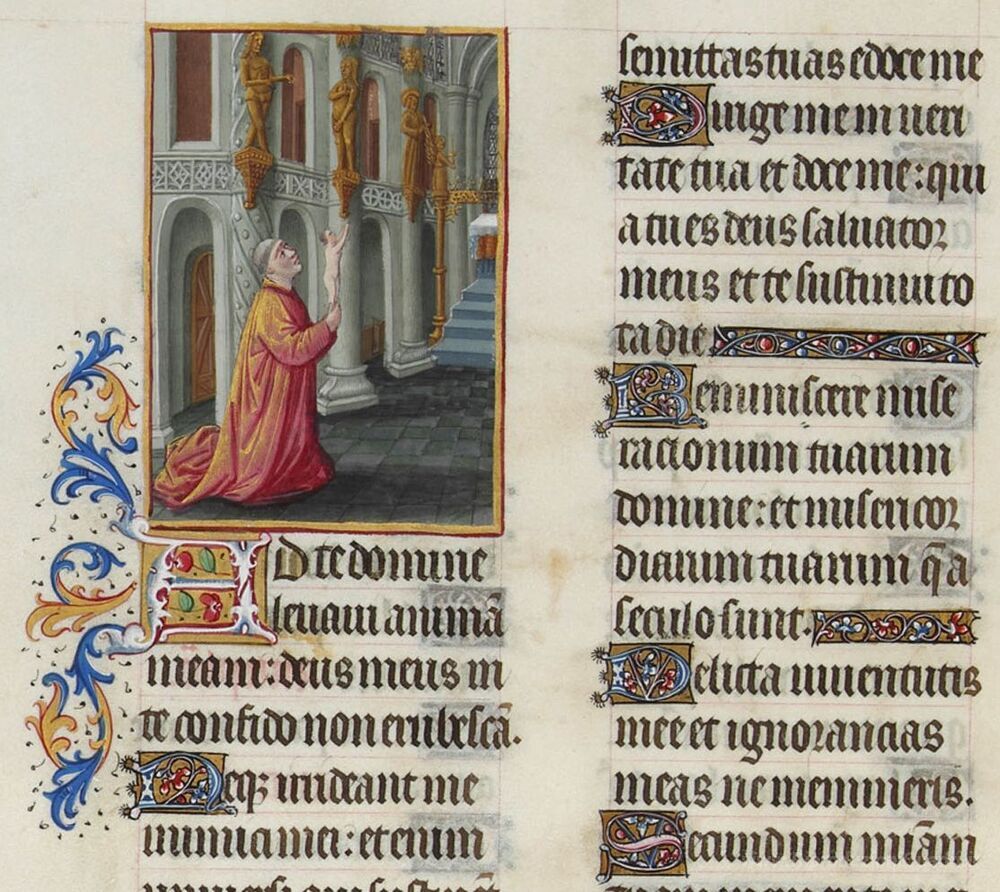 Ad te domine
leuaui animā
meam: deus meus in
te confido non erubescā.
Neqꝫ irrideant me
inimici mei: etenim
uniuersi qui sustinēt
semittas tuas edoce me
Dirige me in ueri
tate tua et doce me: qui
a tu es deus saluator
meus et te sustinui to
ta die.
Reminiscere mise
racionum tuarum
domine: et misericor
diarum tuarum q̄ a
seculo sunt.
Delicta iuuentutis
mee et ignorancias
meas ne memineris.
Secundum miām